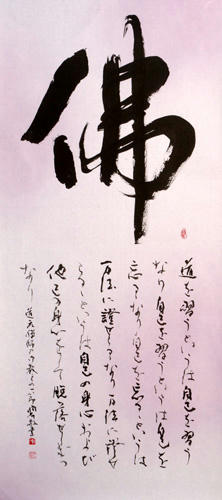 佛
道を習うというは自己を習う
なり自己を習うというは自己を
忘るるなり自己を忘るるというは
万法に證せらるるなり万法に證せ
らるるというは自己の身心および
他己の身心をして脱落せしむる
なり 道元禅師